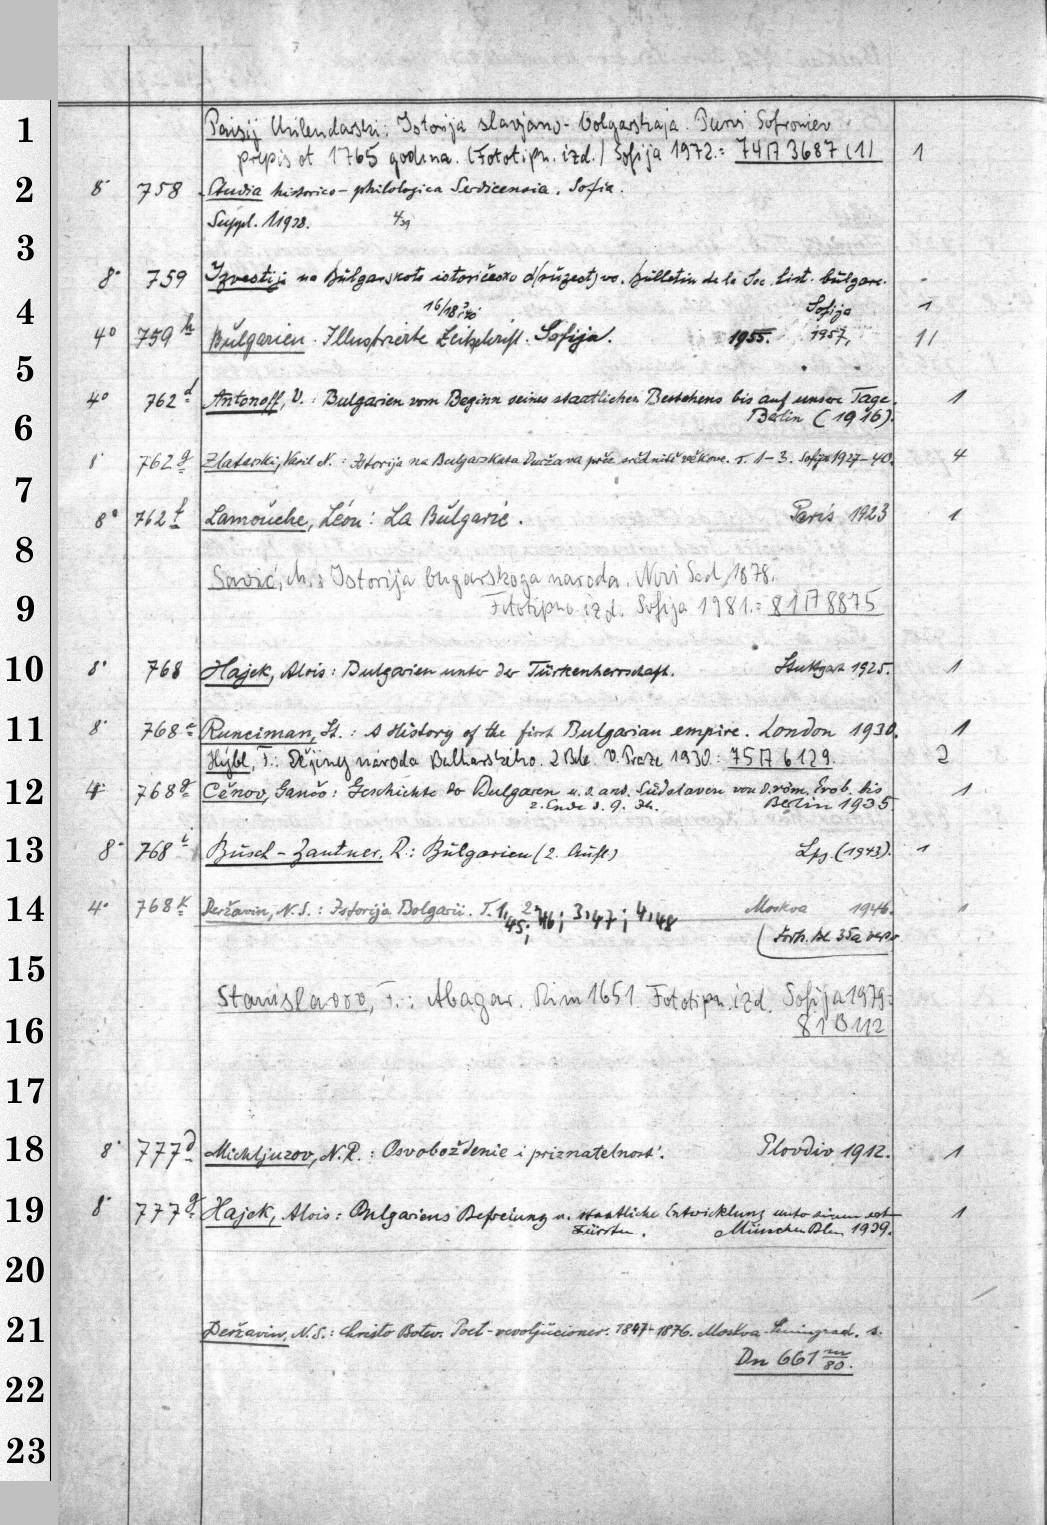 1 Paisij Chilendarski: Istorija slavjano-bolgarskaja. Purvi Sofroniev
prepis ot 1765 godina. (Fototipn. izd.) Sofija 1972.= 74 A 3687 (1) 1
2 8° 758 Studia historico-philologica Serdicensia. Sofia.
Suppl. 1 1938. 4/39
3
8° 759 Izvestija na Bŭlgarskoto istoričesko družestvo. Bulletin de la Soc. hist. bulgare.
4 16/18 Sofija 1
4° 759 h Bulgarien. Illustrierte Zeitschrift. Sofija. 1955. 1957, 11
5
4° 762 d Antonoff, V.: Bulgarien vom Beginn seines staatlichen Bestehens bis auf unsere Tage. 1
6 Berlin (1916).
8° 762 g Zlatarski, Vasil N.: Istorija na Bulgarskata Duržava prěz srědnitě věkove. T. 1-3. Sofija 1927-40. 4
7
8° 762 f Lamouche, Léon: La Bulgarie. Paris 1923 1
8
Savić, M.: Istorija bugarskoga naroda. Novi Sad, 1878.
9 Fototipno izd. Sofija 1981.= 81 A 8875
10 8° 768 Hajek, Alois: Bulgarien unter der Türkenherrschaft. Stuttgart 1925. 1
11 8° 768 c Runciman, St.: A History of the first Bulgarian empire. London 1930. 1
Hýbl, F.: Dějiny národa Bulharského. 2 Bde. V Praze 1930: 75 A 6129. 2
12 4° 768 g Cěnov, Gančo: Geschichte der Bulgaren u. d. and. Südslaven von d. röm. Erob. bis 1
z. Ende d. 9. Jh. Berlin 1935
13 8° 768 i Busch-Zantner, R.: Bulgarien (2. Aufl.) Lpz. (1943). 1
14 4° 768 k Deržavin, N.S.: Istorija Bolgarii. T. 1,45; 2,46; 3,47; 4,48 Moskva 1946. 1
Forts. bl. 35a verso
15
Stanislavov, F.: Abagar. Rim 1651. Fototipn. izd. Sofija 1979:
16 81 B 112
17
18 8° 777 d Michljuzov, N.R.: Osvoboždenie i priznatelnost'. Plovdiv 1912. 1
19 8° 777 g Hajek, Alois: Bulgariens Befreiung u. staatliche Entwicklung unter seinem ersten 1
Fürsten. München Bln 1939.
20
21 Deržavin, N.S.: Christo Botev. Poet-revoljucioner. 1847-1876. Moskva-Leningrad. s.
Dn 661 m/80.
22
23